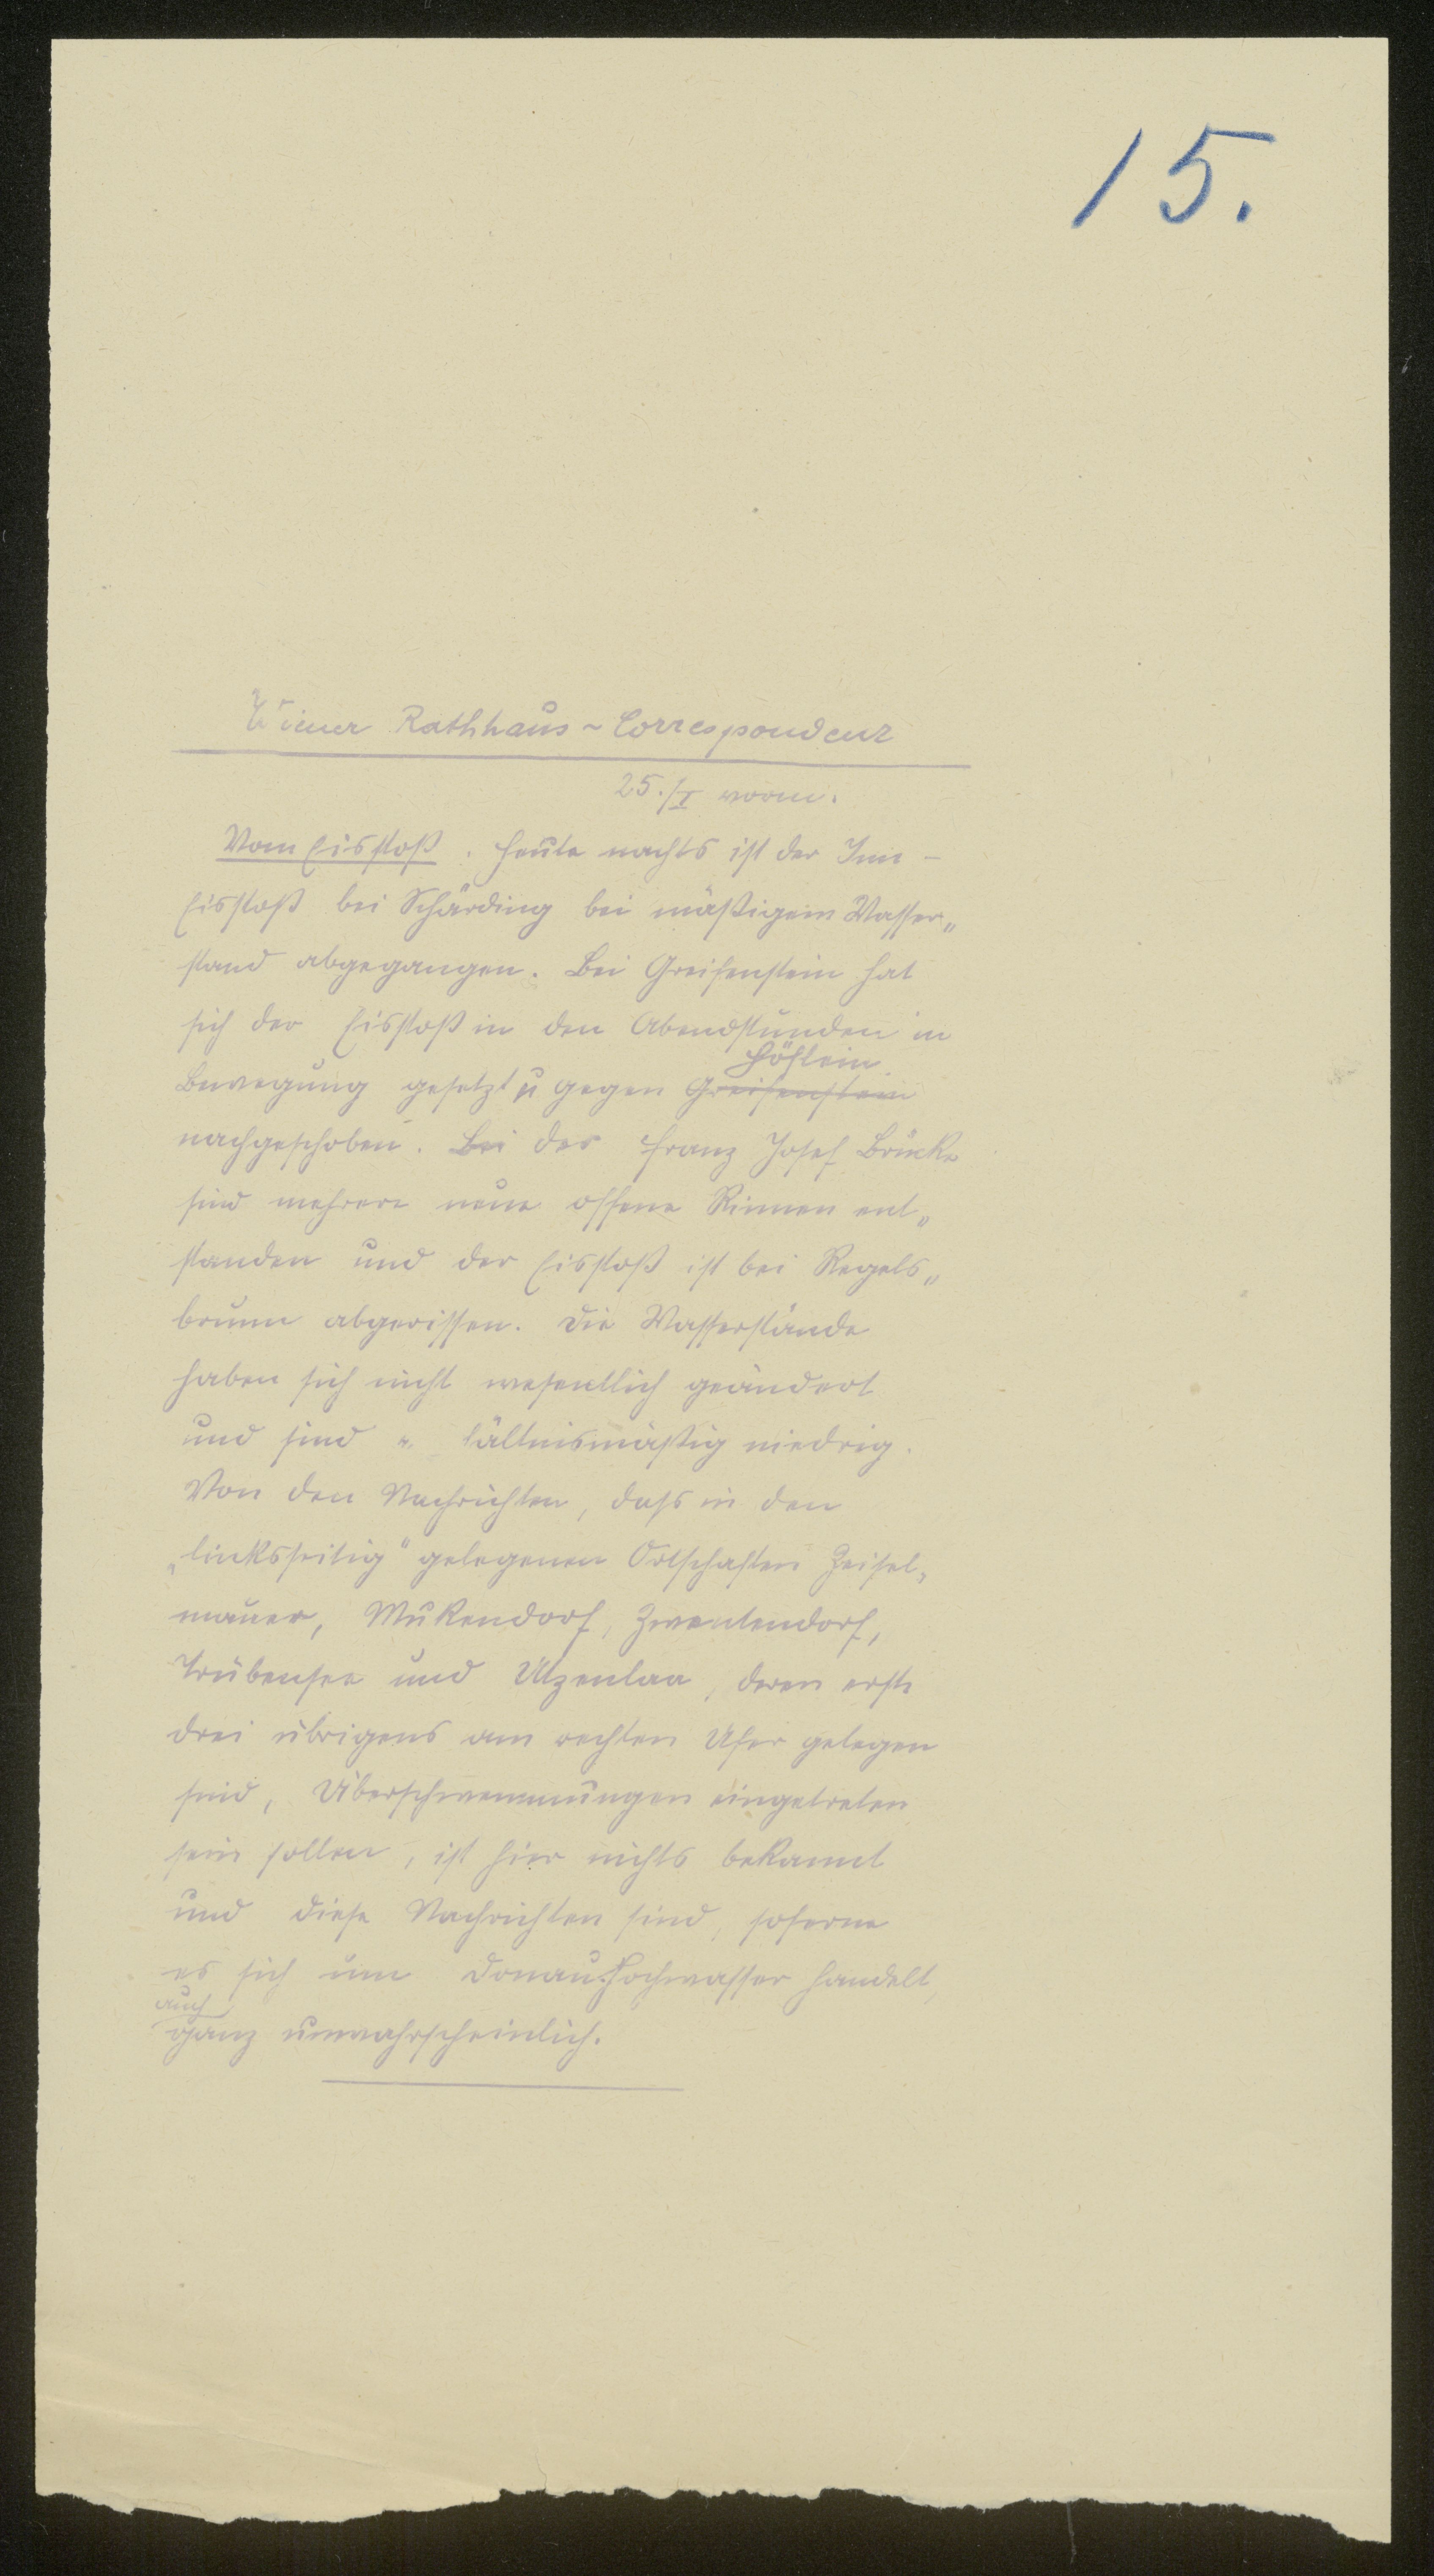 15.
Wiener Rathhaus-Correspondenz
25./I vorm.
Vom Eisstoß. Heute nachts ist der Inn-
Eisstoß bei Schärding bei mäßigem Wasser„
stand abgegangen. Bei Greifenstein hat
sich der Eisstoß in den Abendstunden in
Höflein
Bewegung gesetzt u gegen Greifenstein
nachgeschoben. Bei der Franz Josef Brücke
sind mehrere neue offene Rinnen ent„
standen und der Eisstoß ist bei Regels„
brunn abgerissen. Die Wasserstände
haben sich nicht wesentlich geändert
und sind lältnismäßig niedrig.
Von den Nachrichten, dass in den
„linksseitig" gelegenen Ortschaften Zeisel„
mauer, Mukendorf, Zwentendorf,
Trübensee und Utzenlaa, deren erste
drei übrigens am rechten Ufer gelegen
sind, Überschwemmungen eingetreten
sein sollen, ist hier nichts bekannt
und diese Nachrichten sind, soferne
es sich um Donau-Hochwasser handelt,
auch
ganz unwahrscheinlich.